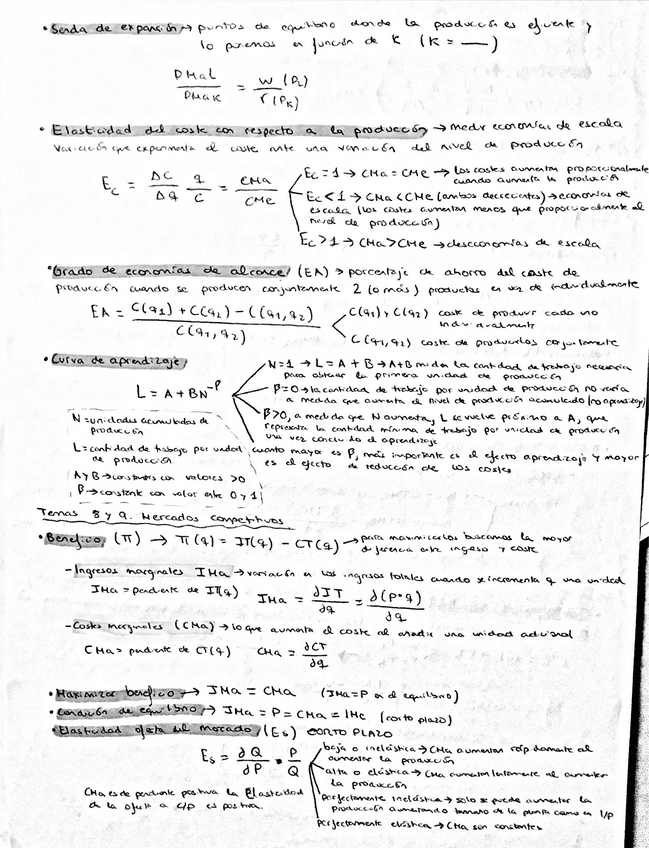 • Senda de expansión → puntos de equilibrio donde la producción es eficiente y
lo ponemos en función de K (K = —)
PMaL / PMaK = w (PL) / r (PK)
• Elasticidad del coste con respecto a la producción → medir economías de escala
Variación que experimenta el coste ante una variación del nivel de producción
Ec = ΔC/Δq · q/C = CMa/CMe
Ec = 1 → CMa = CMe → los costes aumentan proporcionalmente
cuando aumenta la producción
Ec < 1 → CMa < CMe (ambos decrecientes) → economías de
escala (los costes aumentan menos que proporcionalmente al
nivel de producción)
Ec > 1 → CMa > CMe → deseconomías de escala
• Grado de economías de alcance (EA) → porcentaje de ahorro del coste de
producción cuando se producen conjuntamente 2 (o más) productos en vez de individualmente
EA = C(q1) + C(q2) - C(q1,q2) / C(q1,q2)
C(q1) y C(q2) coste de producir cada uno
individualmente
C(q1,q2) coste de producirlos conjuntamente
• Curva de aprendizaje
L = A + BN^-β
N = 1 → L = A + B → A+B miden la cantidad de trabajo necesaria
para obtener la primera unidad de producción
β = 0 → la cantidad de trabajo por unidad de producción no varía
a medida que aumenta el nivel de producción acumulado (no aprendizaje)
β > 0, a medida que N aumenta, L se vuelve próximo a A, que
representa la cantidad mínima de trabajo por unidad de producción
una vez concluido el aprendizaje
cuanto mayor es β, más importante es el efecto aprendizaje y mayor
es el efecto de reducción de los costes
N = unidades acumuladas de
producción
L = cantidad de trabajo por unidad
de producción
A y B → constantes con valores > 0
β → constante con valor entre 0 y 1
Temas 8 y 9. Mercados competitivos
• Beneficio (π) → π(q) = IT(q) - CT(q) → para maximizarlos buscamos la mayor
diferencia entre ingreso y coste
- Ingresos marginales IMa → variación en los ingresos totales cuando se incrementa q una unidad
IMa = pendiente de IT(q) IMa = ∂IT/∂q = ∂(P·q)/∂q
- Costes marginales (CMa) → lo que aumenta el coste al añadir una unidad adicional
CMa = pendiente de CT(q) CMa = ∂CT/∂q
• Maximizar beneficio → IMa = CMa (IMa = P en el equilibrio)
• Condición de equilibrio → IMa = P = CMa = IMe (corto plazo)
• Elasticidad oferta del mercado (Es) CORTO PLAZO
Es = ∂Q/∂P · P/Q
baja o inelástica → CMa aumentan rápidamente al
aumentar la producción
alta o elástica → CMa aumentan lentamente al aumentar
la producción
perfectamente inelástica → solo se puede aumentar la
producción aumentando tamaño de la planta como en l/p
perfectamente elástica → CMa son constantes
CMa es de pendiente positiva la Elasticidad
de la oferta a c/p es positiva.